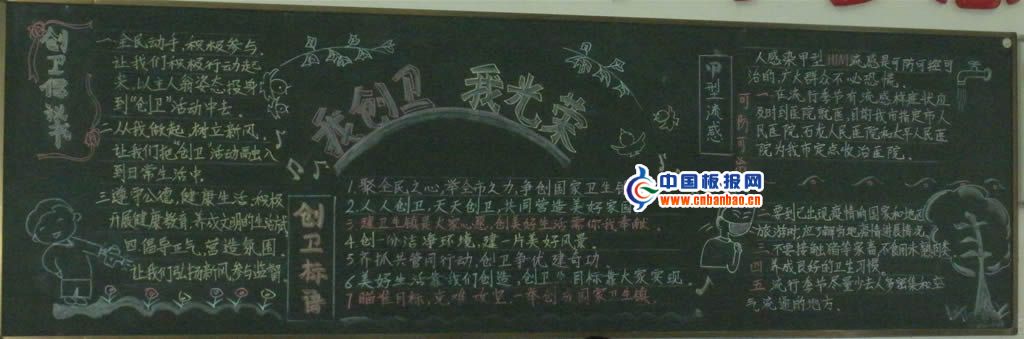 创卫倡议书
一.全民动手,积极参与.
让我们积极行动起
来,以主人翁姿态投身
到“创卫”活动中去.
二.从我做起,树立新风.
让我们把“创卫”活动融入
到日常生活中.
三.遵守公德,健康生活,积极
开展健康教育,养成文明的生活
四.倡导卫气,营造氛围.
让我们弘扬新风参与监督.
我创卫 我光荣
创卫标语
1.聚全民之心,举全市之力,争创国家卫生
2.人人创卫,天天创卫,共同营造美好家
3.建卫生镇是大家心愿,创美好生活需你我奉献.
4.创一份洁净环境,建一片美好风景.
5.齐抓共管同行动,创卫争优建奇功
6.美好生活靠我们创造,创卫目标靠大家实现.
7.瞄准目标,克难攻坚,一举创成国家卫生镇
甲型流感
可防可
人感染甲型H1N1流感是可防可控可
治的,广大群众不必恐慌.
一.在流行季节有流感样症状应
及时到医院就医,目前我市指定市人
民医院,石龙人民医院和太平人民医
院为我市定点收治医院.
二.要到已出现疫情的国家和地区
旅游时,应了解当地疫情进展情况.
三.不要接触猪等家畜
四.养成良好的卫生习惯.
五.流行季节尽量少去人多密集和空
气流通的地方.
中国板报网
www.cnbanbao.cn